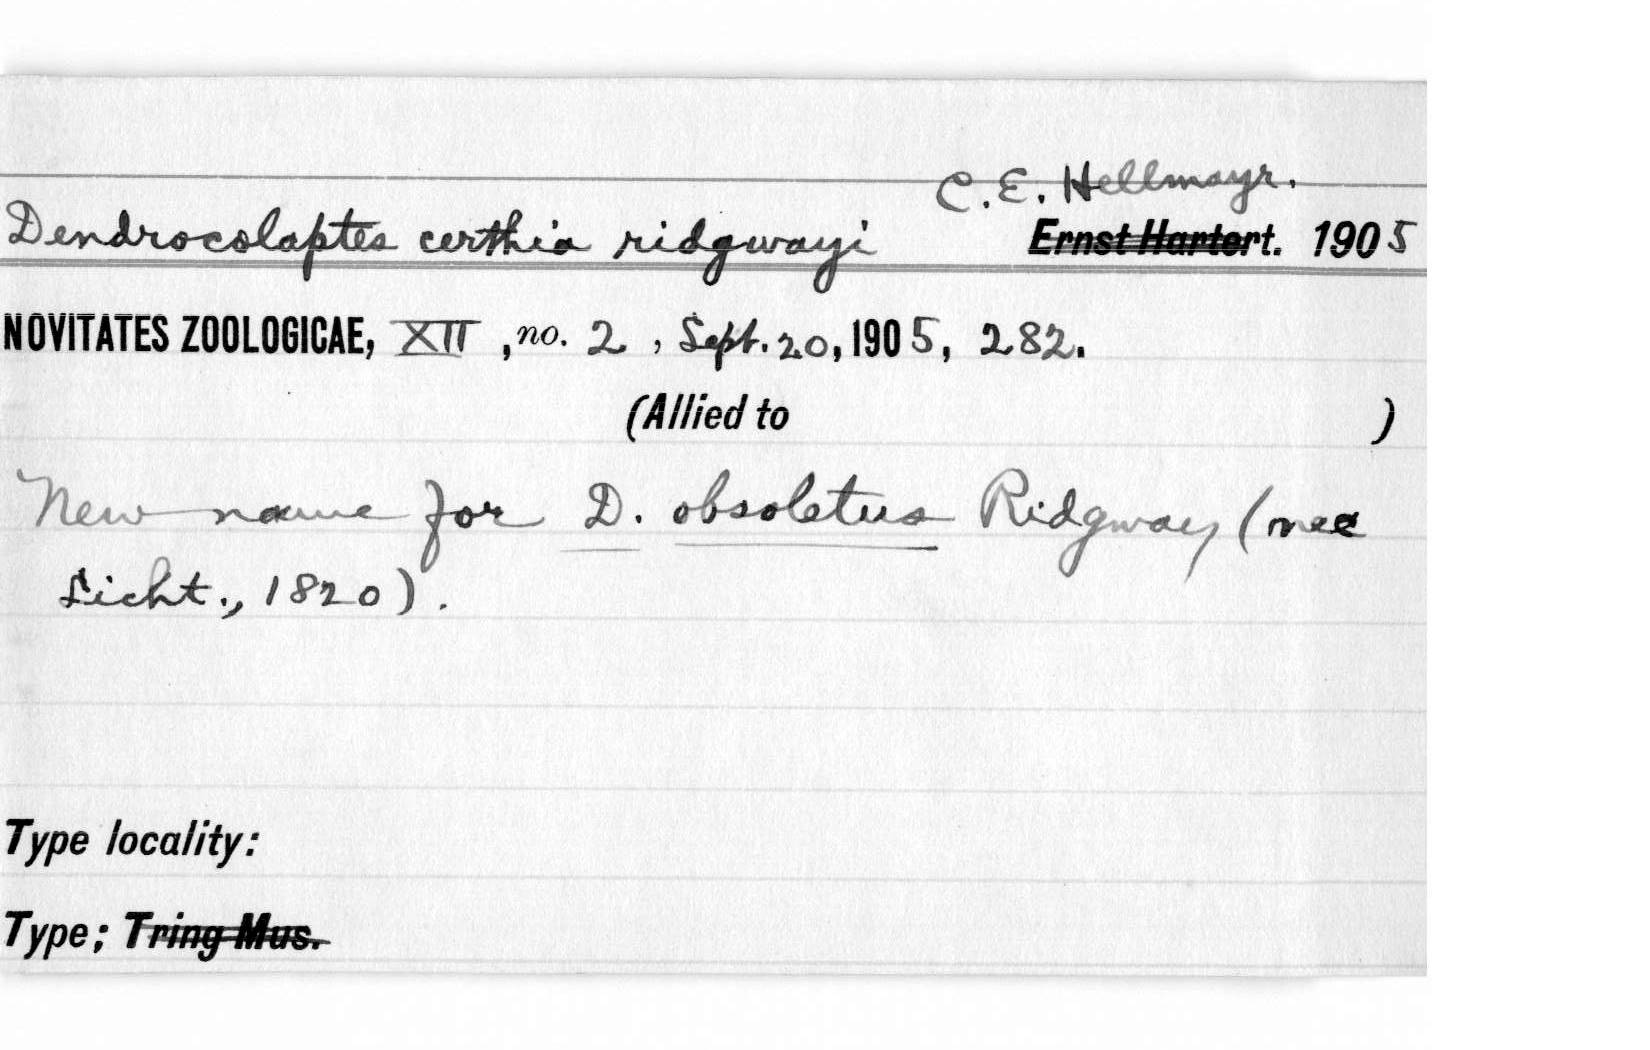 C. E. Hellmayr.
Dendrocolaptes certhia ridgwayi Ernst Hartert. 1905
NOVITATES ZOOLOGICAE, XII, no. 2, Sept. 20, 1905, 282.
(Allied to )
New name for D. obsoletus Ridgway (nec
Licht., 1820).
Type locality:
Type; Tring Mus.